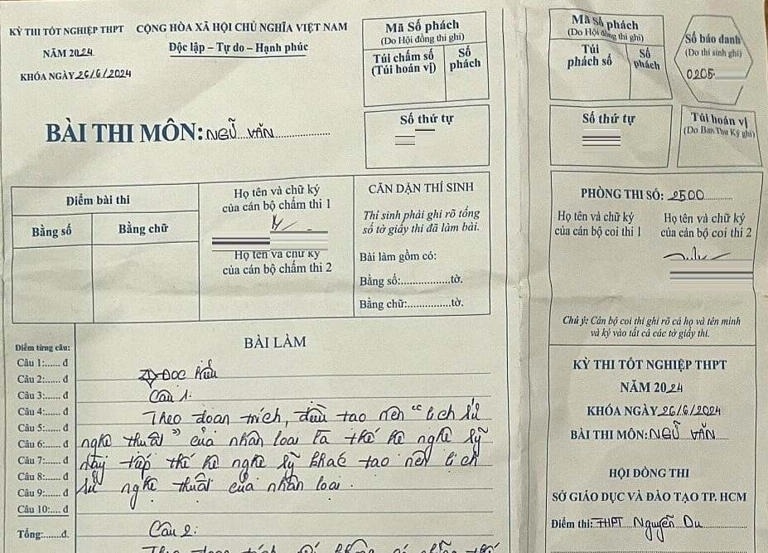 KỲ THI TỐT NGHIỆP THPT
NĂM 2024
KHÓA NGÀY 26/6/2024
CỘNG HÒA XÃ HỘI CHỦ NGHĨA VIỆT NAM
Độc lập – Tự do – Hạnh phúc
BÀI THI MÔN: NGỮ VĂN
Mã Số phách
(Do Hội đồng thi ghi)
Túi chấm số
(Túi hoán vị)
Số
phách
Số thứ tự
Điểm bài thi
Bằng số
Bằng chữ
Họ tên và chữ ký
của cán bộ chấm thi 1
Họ tên và chữ ký
của cán bộ chấm thi 2
CĂN DẶN THÍ SINH
Thí sinh phải ghi rõ tổng
số tờ giấy thi đã làm bài.
Bài làm gồm có:
Bằng số:................tờ.
Bằng chữ:..............tờ.
BÀI LÀM
Điểm từng câu:
Câu 1:...... đ
Câu 2:...... đ
Câu 3:...... đ
Câu 4:...... đ
Câu 5:...... đ
Câu 6:...... đ
Câu 7:...... đ
Câu 8:...... đ
Câu 9:...... đ
Câu 10:.... đ
Tổng:.......đ.
I) Đọc hiểu
Câu 1:
Theo đoạn trích, điều tạo nên "lịch sử
nghệ thuật" của nhân loại là thế hệ nghệ sỹ
này tiếp thế hệ nghệ sỹ khác tạo nên lịch
sử nghệ thuật của nhân loại.
Câu 2:
Theo đoạn trích,
Mã Số phách
(Do Hội đồng thi ghi)
Túi
phách số
Số
phách
Số báo danh
(Do thí sinh ghi)
0205
Số thứ tự
Túi hoán vị
(Do Ban Thư Ký ghi)
PHÒNG THI SỐ: 2500
Họ tên và chữ ký
của cán bộ coi thi 1
Họ tên và chữ ký
của cán bộ coi thi 2
Chú ý: Cán bộ coi thi ghi rõ cả họ và tên mình
và ký vào tất cả các tờ giấy thi.
KỲ THI TỐT NGHIỆP THPT
NĂM 2024
KHÓA NGÀY 26/6/2024
BÀI THI MÔN: NGỮ VĂN
HỘI ĐỒNG THI
SỞ GIÁO DỤC VÀ ĐÀO TẠO TP. HCM
Điểm thi: THPT Nguyễn Du